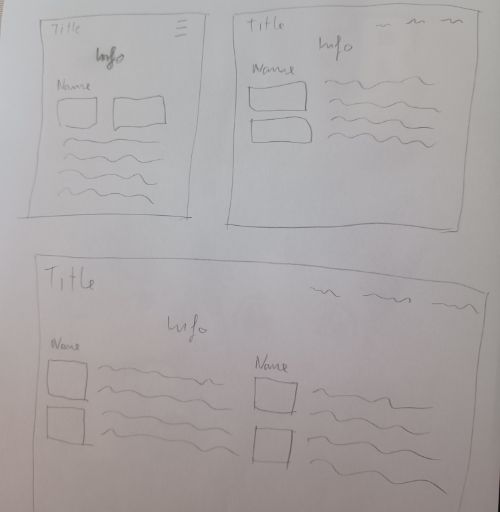 Title
Info
Name
Title
Info
Name
Title
Info
Name
Name